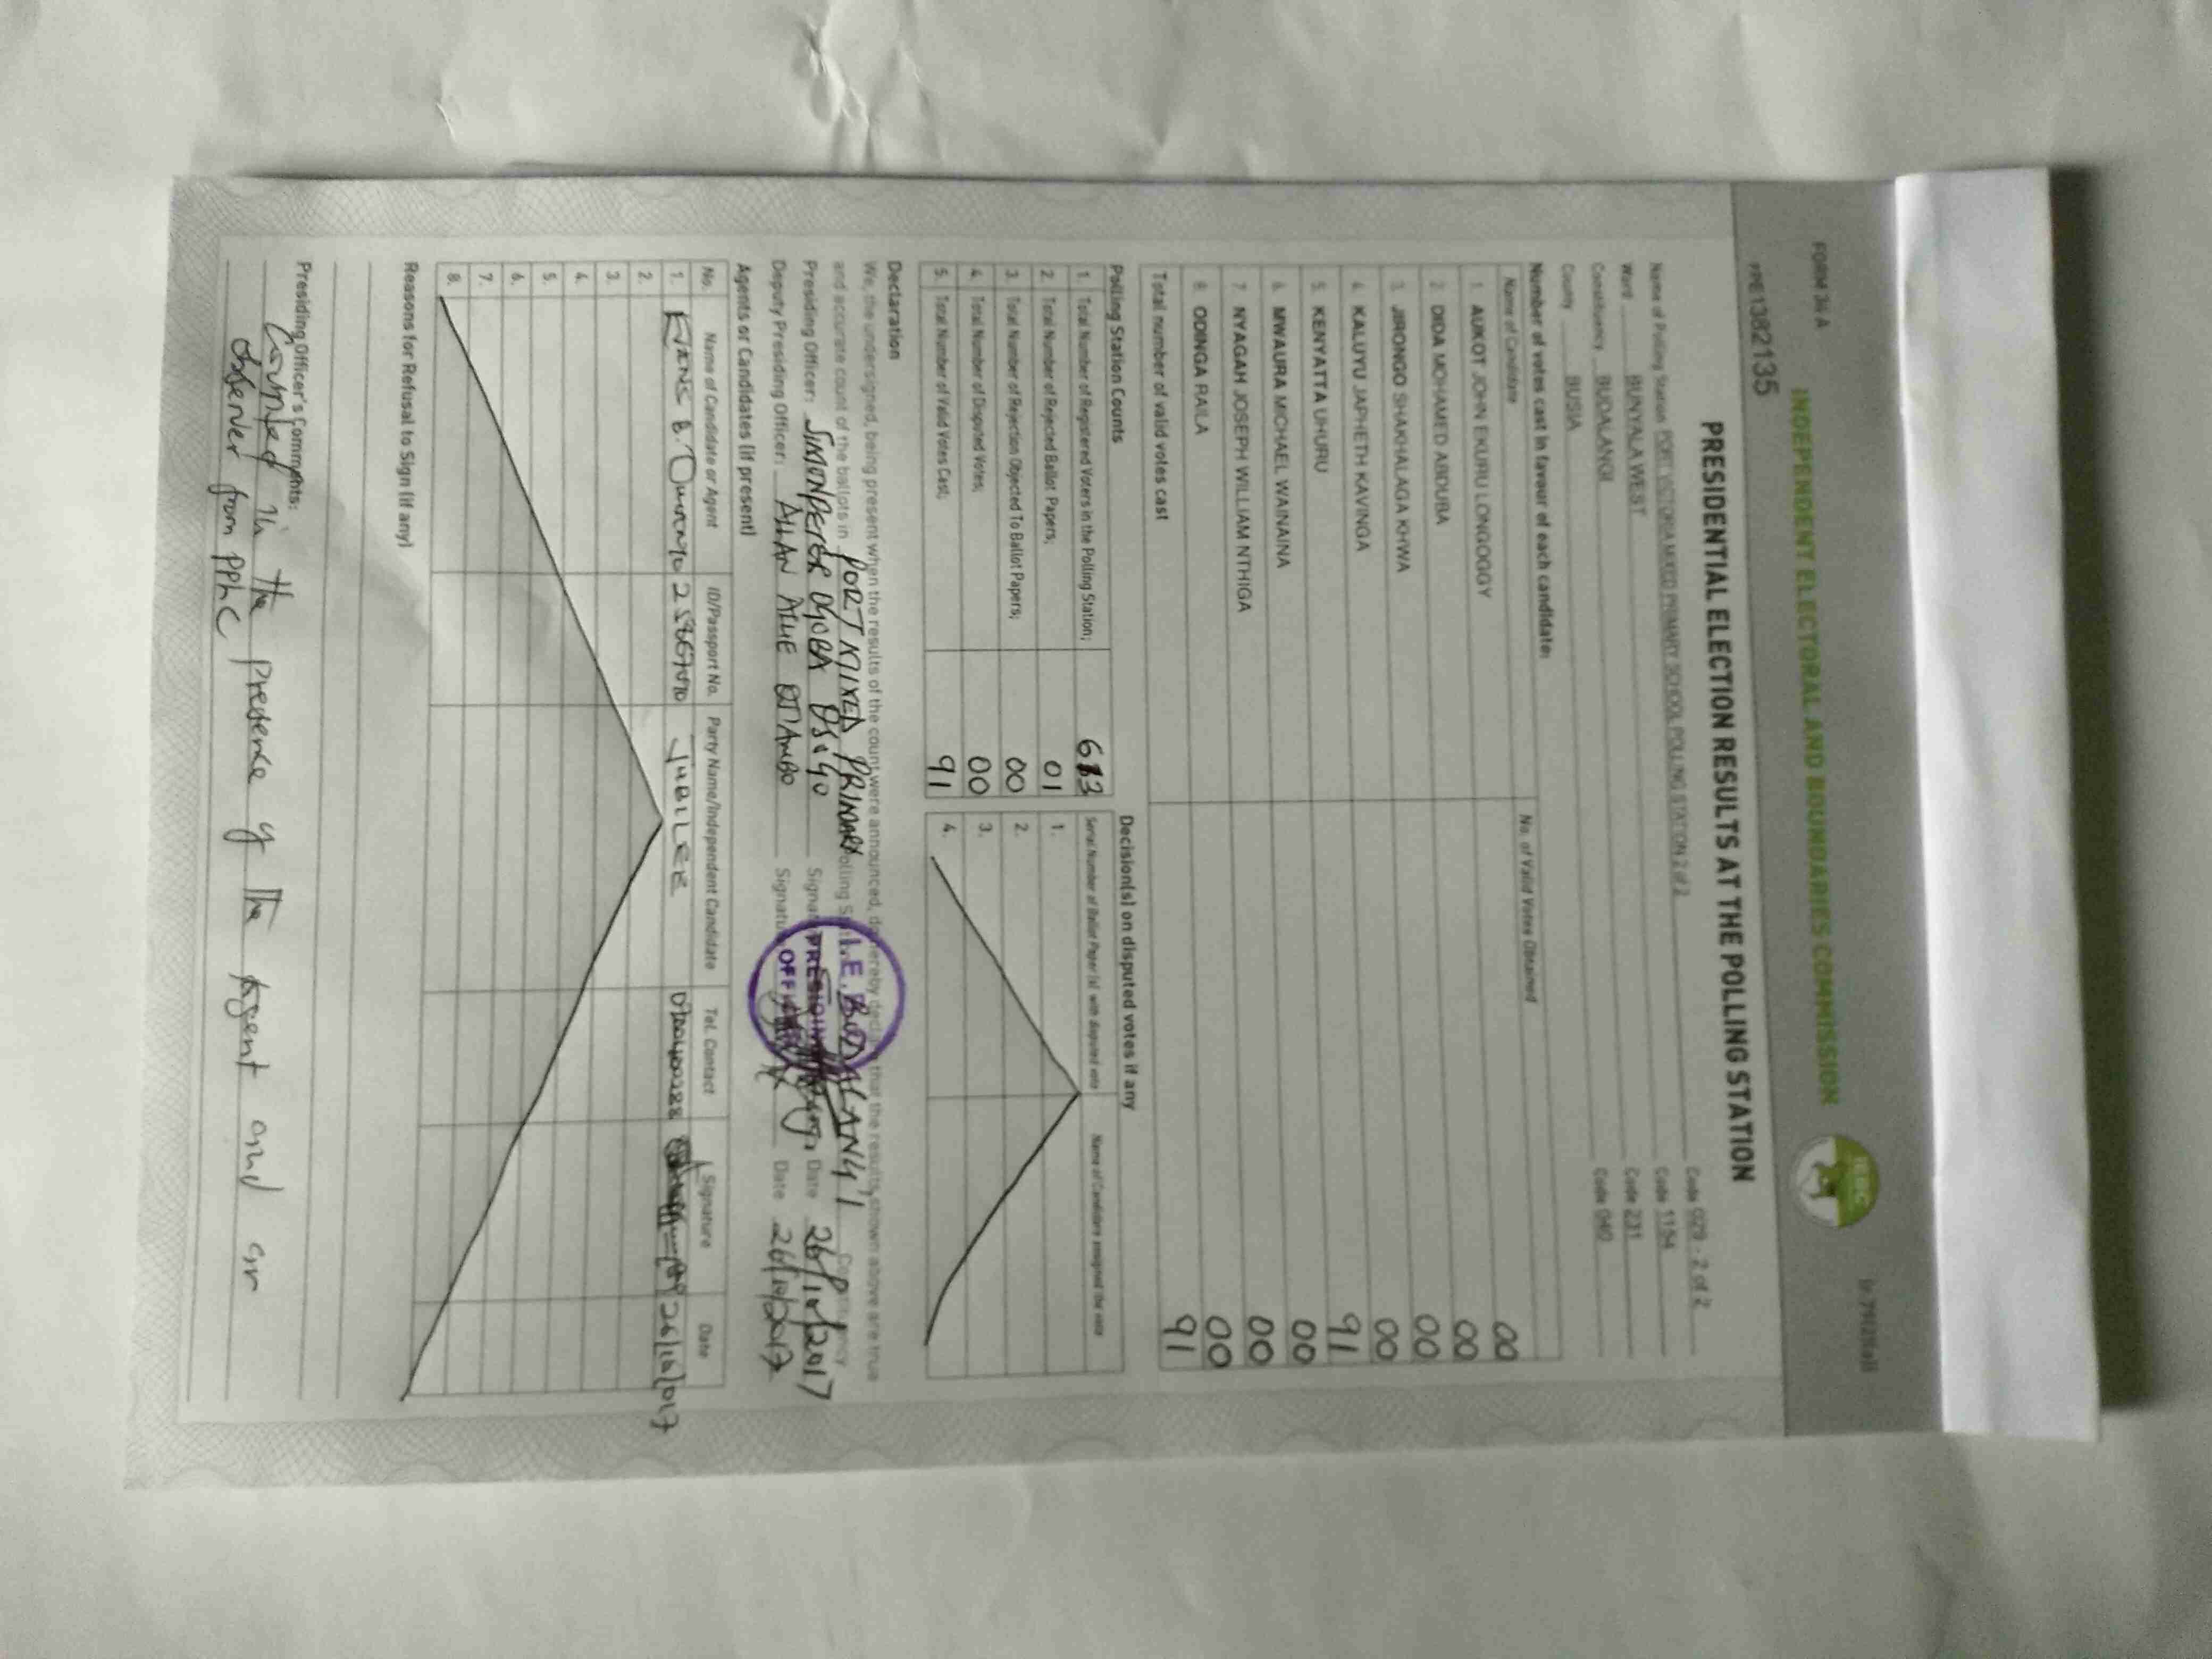 FORM 34 A
INDEPENDENT ELECTORAL AND BOUNDARIES COMMISSION
PRE1382135
PRESIDENTIAL ELECTION RESULTS AT THE POLLING STATION
Name of Polling Station PORT VICTORIA MIXED PRIMARY SCHOOL POLLING STATION 2 of 2 Code 029 - 2 of 2
Ward BUNYALA WEST Code 1154
Constituency BUDALANGI Code 231
County BUSIA Code 040
Number of votes cast in favour of each candidate:
Name of Candidate No. of Valid Votes Obtained
1. AUKOT JOHN EKURU LONGOGGY 00
2. DIDA MOHAMED ABDUBA 00
3. JIRONGO SHAKHALAGA KHWA 00
4. KALUYU JAPHETH KAVINGA 00
5. KENYATTA UHURU 91
6. MWAURA MICHAEL WAINAINA 00
7. NYAGAH JOSEPH WILLIAM NTHIGA 00
8. ODINGA RAILA 00
Total number of valid votes cast 91
Polling Station Counts
1. Total Number of Registered Voters in the Polling Station; 613
2. Total Number of Rejected Ballot Papers; 01
3. Total Number of Rejection Objected To Ballot Papers; 00
4. Total Number of Disputed Votes; 00
5. Total Number of Valid Votes Cast; 91
Decision(s) on disputed votes if any
Serial Number of Ballot Paper (s) with disputed vote Name of Candidate assigned the vote
1.
2.
3.
4.
Declaration
We, the undersigned, being present when the results of the count were announced, do hereby declare that the results shown above are true
and accurate count of the ballots in PORT MIXED PRIMARY Polling BUDALANGI Constituency
Presiding Officer: SIMONPETER OGOBA Date 26/10/2017
Deputy Presiding Officer: ALLAN Signature Date 26/10/2017
I.E.B.C
PRESIDING
OFFICER
Agents or Candidates (if present)
No. Name of Candidate or Agent ID/Passport No. Party Name/Independent Candidate Tel. Contact Signature Date
1. EVANS B. JUBILEE 26/10/2017
2.
3.
4.
5.
6.
7.
8.
Reasons for Refusal to Sign (if any)
Presiding Officer's Comments:
Counted in the presence of the Agent and
observer from pphc